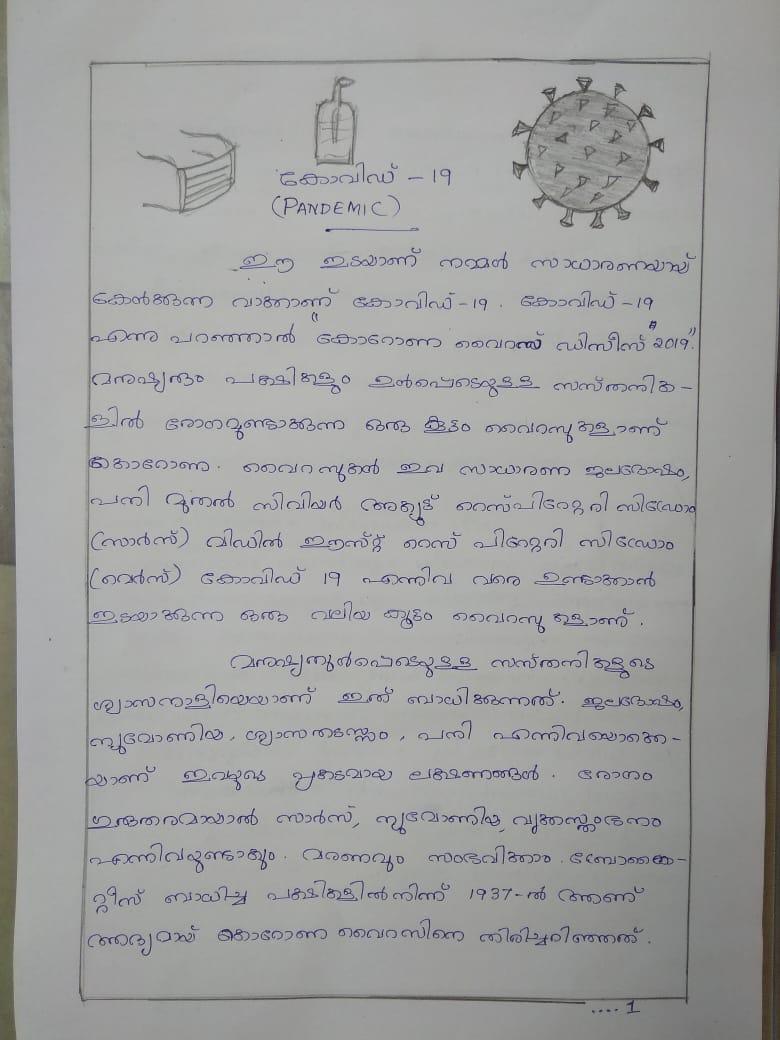 കോവിഡ് - 19
(PANDEMIC)
ഈ ഇടയാണ് നമ്മൾ സാധാരണയായ്
കേൾക്കുന്ന വാക്കാണ് കോവിഡ്-19. കോവിഡ് -19
എന്നു പറഞ്ഞാൽ "കോറോണ വൈറസ് ഡിസീസ് 2019".
മനുഷ്യരും പക്ഷികളും ഉൾപ്പെടെയുള്ള സസ്തനിക-
ളിൽ രോഗമുണ്ടാക്കുന്ന ഒരു കൂട്ടം വൈറസുകളാണ്
കൊറോണ. വൈറസുകൾ ഇവ സാധാരണ ജലദോഷം,
പനി മുതൽ സിവിയർ അക്യൂട്ട് റെസ്പിറേറ്ററി സിഡ്രോം
(സാർസ്) മിഡിൽ ഈസ്റ്റ് റെസ് പിറേറ്ററി സിഡ്രോം
(മെർസ്) കോവിഡ് 19 എന്നിവ വരെ ഉണ്ടാക്കാൻ
ഇടയാക്കുന്ന ഒരു വലിയ കൂട്ടം വൈറസു കളാണ്.
മനുഷ്യനുൾപ്പെടെയുള്ള സസ്തനികളുടെ
ശ്വാസനാളിയെയാണ് ഇത് ബാധിക്കുന്നത്. ജലദോഷം,
ന്യുമോണിയ, ശ്വാസതടസ്സം, പനി എന്നിവയൊക്കെ-
യാണ് ഇവയുടെ പ്രകടമായ ലക്ഷണങ്ങൾ. രോഗം
ഗുരുതരമായാൽ സാർസ്, ന്യുമോണിയ, വൃക്കസ്തംഭനം
എന്നിവയുണ്ടാകും. മരണവും സംഭവിക്കാം. ബ്രോങ്കൈ-
റ്റീസ് ബാധിച്ച പക്ഷികളിൽനിന്ന് 1937-ൽ ആണ്
ആദ്യമായ് കൊറോണ വൈറസിനെ തിരിച്ചറിഞ്ഞത്.
.... 1